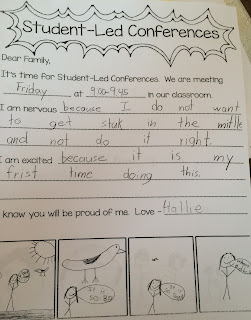 Student-Led Conferences
Dear Family,
It's time for Student-Led Conferences. We are meeting
Friday at 9:00-9:45 in our classroom.
I am nervous because I do not want
to get stuk in the mittle
and not do it right.
I am excited because it is my
frist time doing this.
know you will be proud of me. Love - Hallie